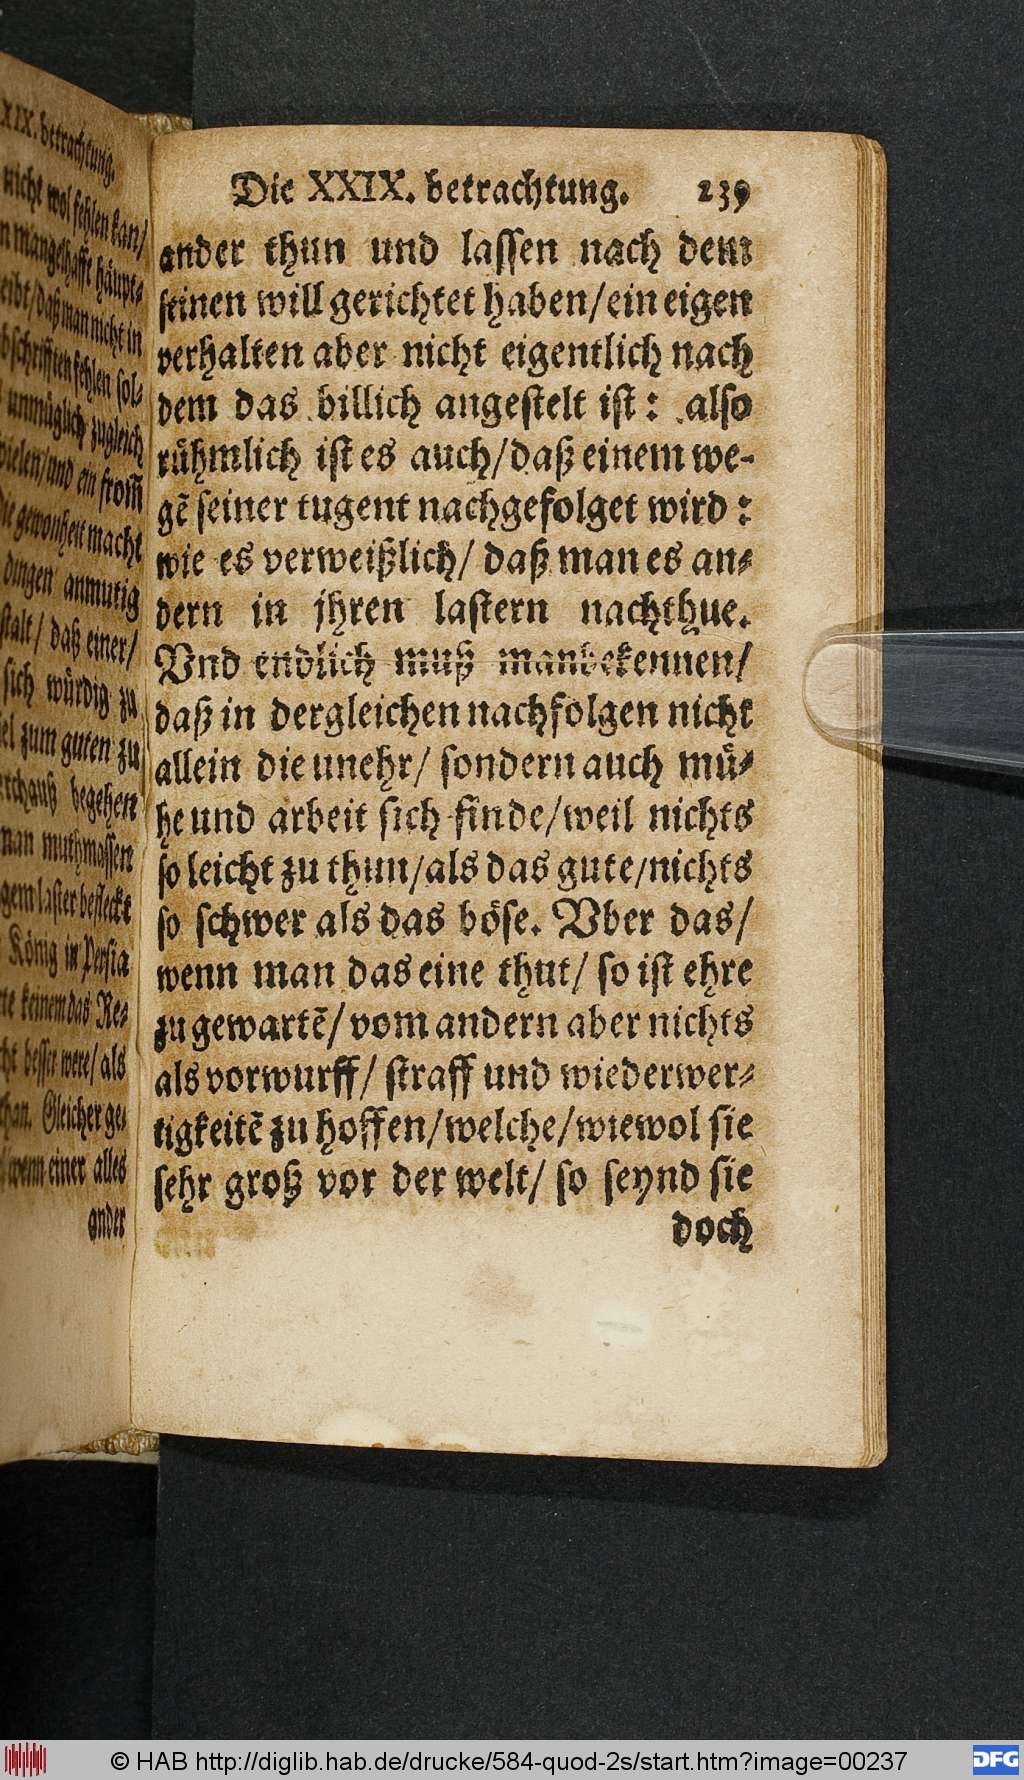 XIX. betrachtung.
nicht wol fehlen kan/
mangelhafft häupt⸗
daß man nicht in
schrifften fehlen sol⸗
unmüglich zugleich
und ein from̃
gewonheit macht
dingen anmutig
daß einer/
sich würdig zu
zum guten zu
begehen
man muthmassen
laster befleckt
König in Persia
keinem das Re⸗
besser were/als
Gleicher ge⸗
wenn einer alles
ander
Die XXIX. betrachtung. 239
ander thun und lassen nach dem
seinen will gerichtet haben/ein eigen
verhalten aber nicht eigentlich nach
dem das billich angestelt ist: also
rühmlich ist es auch/daß einem we-
gẽ seiner tugent nachgefolget wird:
wie es verweißlich/ daß man es an⸗
dern in jhren lastern nachthue.
Vnd endlich muß man bekennen/
daß in dergleichen nachfolgen nicht
allein die unehr/ sondern auch mü⸗
he und arbeit sich finde/weil nichts
so leicht zu thun/als das gute/nichts
so schwer als das böse. Vber das/
wenn man das eine thut/ so ist ehre
zu gewartẽ/ vom andern aber nichts
als vorwurff/ straff und wiederwer⸗
tigkeitẽ zu hoffen/welche/wiewol sie
sehr groß vor der welt/ so seynd sie
doch
© HAB http://diglib.hab.de/drucke/584-quod-2s/start.htm?image=00237
DFG